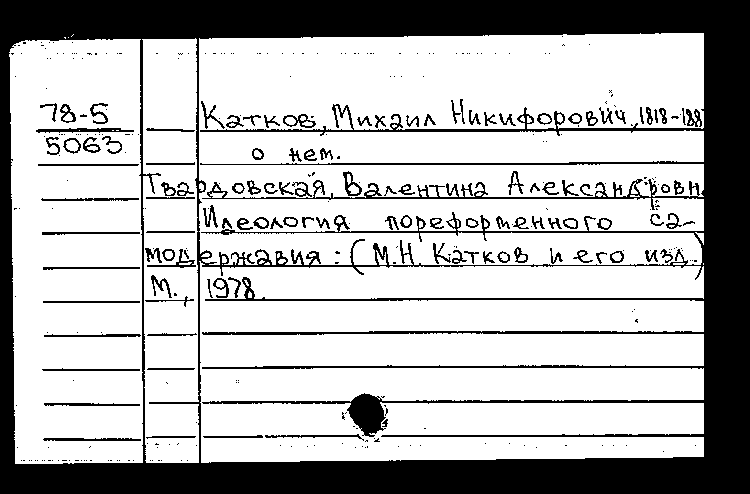 78-5
5063
Катков, Михаил Никифорович, 1818-188
о нем.
Твардовская, Валентина Александровн
Идеология пореформенного са-
модержавия: (М.Н. Катков и его изд.)
М., 1978.